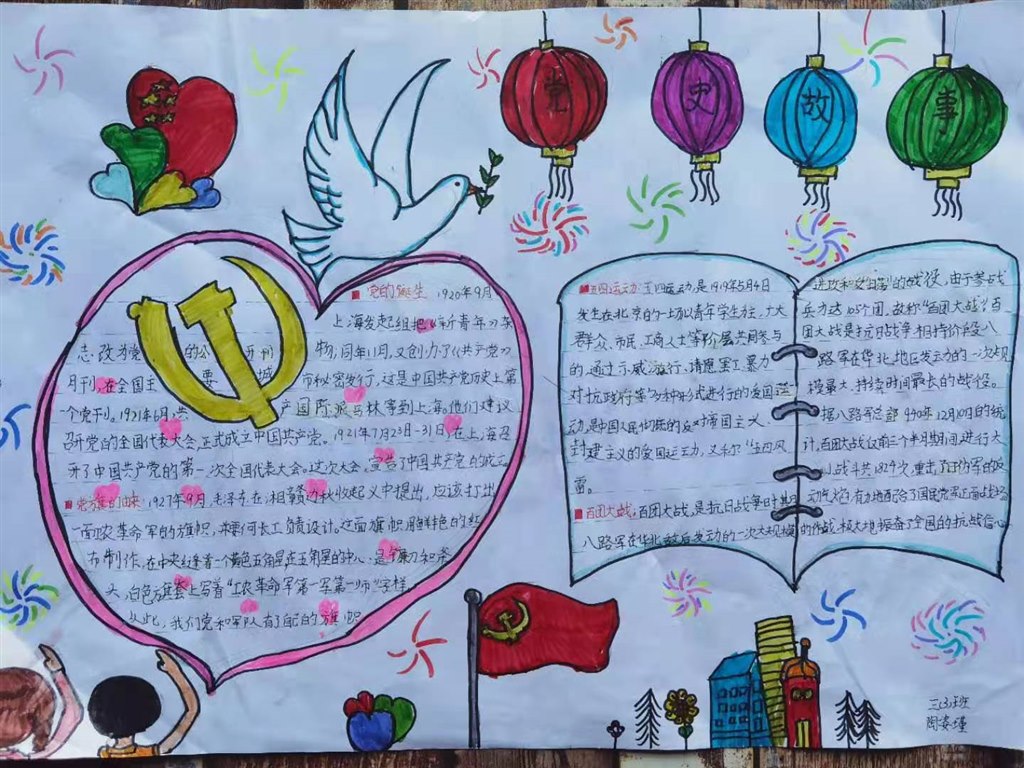 党史故事
■党的诞生 1920年9月
上海发起组把《新青年》杂
志,改为党 的公 开刊 物,同年11月,又创办了《共产党》
月刊,在全国主 要 城 市秘密发行,这是中国共产党历史上第
一个党刊。1921年6月,共 产国际派马林等到上海。他们建议
召开党的全国代表大会,正式成立中国共产党。1921年7月23日-31日,在上海召
开了中国共产党的第一次全国代表大会。这次大会,宣告了中国共产党的成立
■党旗的由来:1927年9月,毛泽东在湘赣边秋收起义中提出,应该打出
一面农革命军的旗帜,
布制作,在中央红连着一个黄色五角星在五角星的中心,是镰刀和斧
头,白色旗套上写着“工农革命军第一军第一师”字样
从此,我们党和军队有了自己的旗帜
■五四运动:五四运动,是1919年5月4日
发生在北京的一场以青年学生主,广大
群众、市民、工商人士等阶层共同参与
的,通过示威游行、请愿、罢工、暴力
对抗政府等多种形式进行的爱国运
动,是中国人民彻底的反对帝国主义、
封建主义的爱国运动,又称“五四风
雷。
■百团大战:百团大战,是抗日战争时期
八路军在华北敌后发动的一次大规模
进攻和 的战役,由于参战
兵力达105个团,故称“百团大战”百
团大战是抗日战争相持阶段八
路军在华北地区发动的一次规
模最大、持续时间最长的战役。
据八路军总部 940年12月10日的统
计,百团大战仅前三个半月期间,进行大
小战斗共1824次,重击了日伪军的反
动气焰,有力地配合了国民党军正面战场
的作战,极大地振奋了全国的抗战信心
三(3)班
陶姿瑾